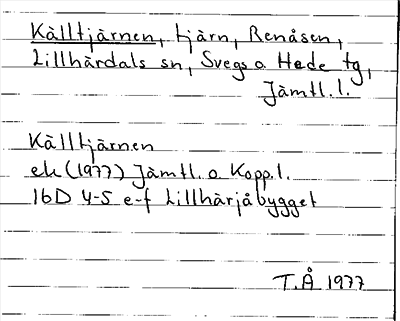 Källtjärnen, tjärn, Renåsen,
Lillhärdals sn, Svegs o. Hede tg,
Jämtl. l.
Källtjärnen
ek (1977) Jämtl. o Kopp. l.
16D 4-5 e-f Lillhärjåbygget
T.Å 1977